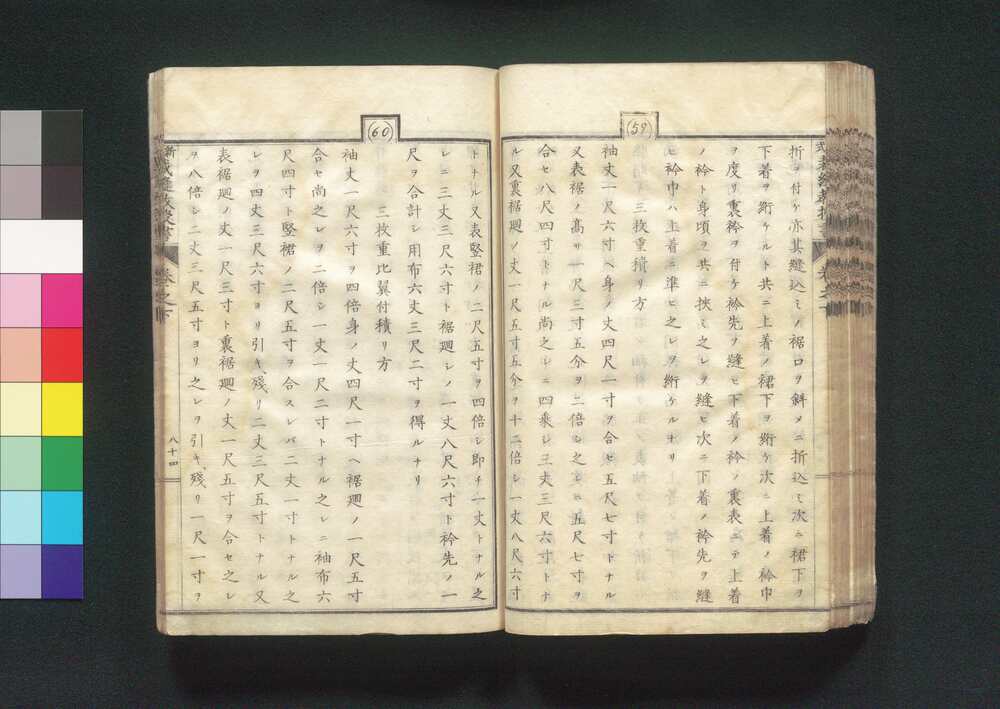 (59)
折ヲ付ケ亦其縫込ミノ裾口ヲ斜メニ折込ミ次ニ裙下ヲ
下着ヲ絎ケルト共ニ上着ノ裙下ヲ絎ケ次ニ上着ノ衿巾
ヲ度リ裏衿ヲ付ケ衿先ヲ縫ヒ下着ノ衿ノ裏表ニテ上着
ノ衿ト身頃ヲ共ニ挾ミ之レヲ縫ヒ次ニ下着ノ衿先ヲ縫
ヒ衿巾ハ上着ニ準ヒ之レヲ絎ケルナリ
三枚重積リ方
袖丈一尺六寸ヘ身ノ丈四尺一寸ヲ合セ五尺七寸トナル
又表裾ノ高サ一尺三寸五分ヲ二倍シ之レヒ五尺七寸ヲ
合セ八尺四寸トナル尚之レニ四乘シ三丈三尺六寸トナ
ル又裏裾廻ノ丈一尺五寸五分ヲ十二倍シ一丈八尺六寸
(60)
トナル又表竪裙ノ二尺五寸ヲ四倍シ即チ一丈トナル之
レニ三丈三尺六寸ト裾廻シノ一丈八尺六寸ト衿先ノ一
尺ヲ合計シ用布六丈三尺二寸ヲ得ルナリ
三枚重比翼付積リ方
袖丈一尺六寸ヲ四倍身ノ丈四尺一寸ヘ裾廻ノ一尺五寸
合セ尚之レヲ二倍シ一丈一尺二寸トナル之レニ袖布六
尺四寸ト竪裙ノ二尺五寸ヲ合スレバ二丈一寸トナル之
レヲ四丈三尺六寸ヨリ引キ、殘リ二丈三尺五寸トナル又
表裾廻ノ丈一尺三寸ト裏裾廻ノ丈一尺五寸ヲ合セ之レ
ヲ八倍シ二丈三尺五寸ヨリ之レヲ引キ、殘リ一尺一寸ヲ
八十四